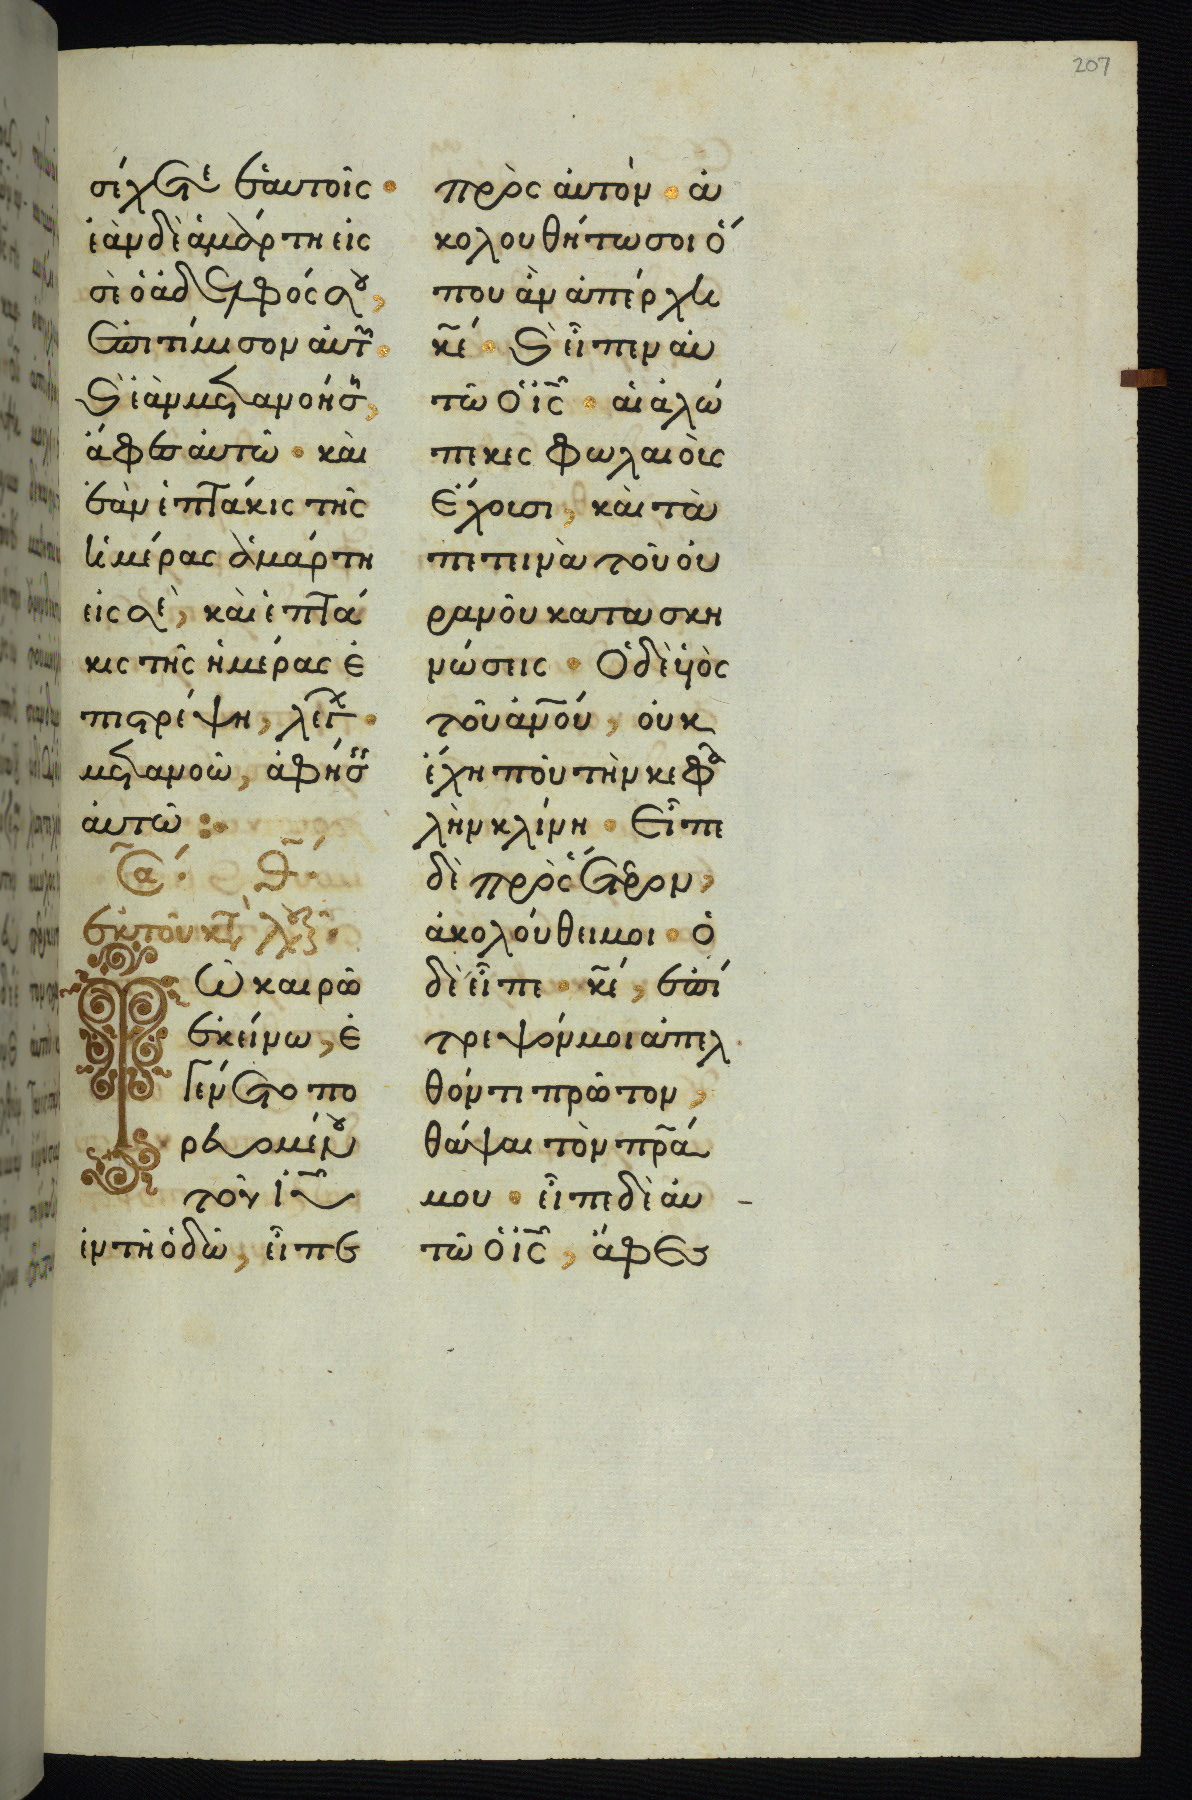 207
σέχετε ἑαυτοῖς·
ἐὰν δὲ ἁμάρτη εἰς
σὲ ὁ ἀδελφός σου,
ἐπιτίμησον αὐτῶ·
Καὶ ἐὰν μετανοήση,
ἄφες αὐτῶ· καὶ
ἐὰν ἑπτάκις τῆς
ἡμέρας ἁμάρτη
εἰς σὲ, καὶ ἑπτά
κις τῆς ἡμέρας ἐ
πιστρέψη, λέγων·
μετανοῶ, ἀφήσεις
αὐτῶ :·
ἐκ τοῦ κατὰ λουκᾶν·
Τῶ καιρῶ
ἐκείνω, ἐ
γένετο πο
ρευομένου
τοῦ ιυ
ἐν τῆ ὁδῶ, εἶπε
πρὸς αὐτόν· ἀ
κολουθήτω σοι ὅ
που ἂν ἀπέρχη
κέ· Καὶ εἶπεν αὐ
τῶ ὁ ις· αἱ ἀλώ
πεκες φωλαιοὺς
ἔχουσι, καὶ τὰ
πετεινὰ τοῦ οὐ
ρανοῦ κατασκη
νώσεις· Ὁ δὲ υἱὸς
τοῦ ἀνου, οὐκ
ἔχη ποῦ τὴν κεφα
λὴν κλίνη· Εἶπε
δὲ πρὸς ἕτερον,
ἀκολούθει μοι· ὁ
δὲ εἶπε· κέ, ἐπί
τρεψόν μοι ἀπελ
θόντι πρῶτον,
θάψαι τὸν πρα
μου· εἶπε δὲ αὐ
τῶ ὁ ις, ἄφες